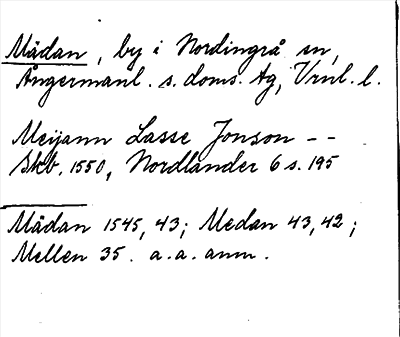 Mådan, by i Nordingrå sn,
Ångermanl. s. doms. tg, Vrnl. l.
Meijann Lasse Jonson – –
Skb. 1550, Nordlander 6 s. 195
Mådan 1545, 43; Medan 43, 42;
Mellen 35. a. a. anm.